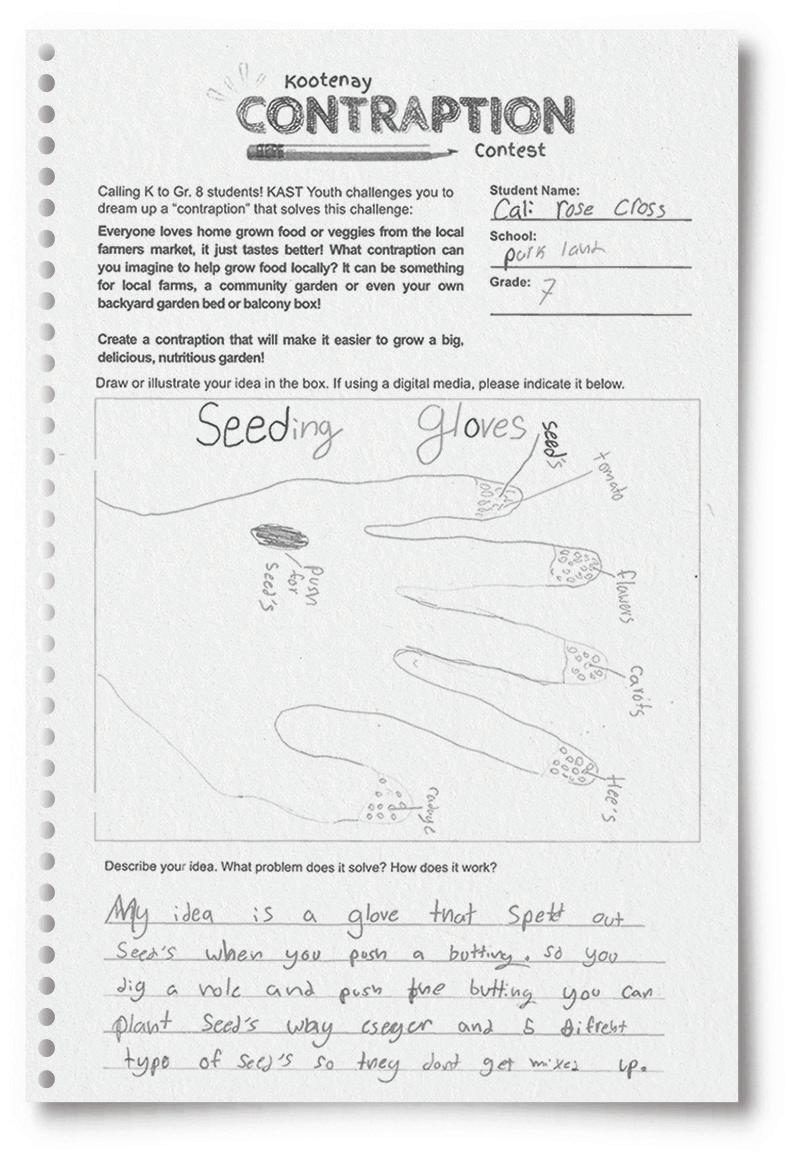 Kootenay
CONTRAPTION
Contest
Calling K to Gr. 8 students! KAST Youth challenges you to
dream up a “contraption” that solves this challenge:
Everyone loves home grown food or veggies from the local
farmers market, it just tastes better! What contraption can
you imagine to help grow food locally? It can be something
for local farms, a community garden or even your own
backyard garden bed or balcony box!
Create a contraption that will make it easier to grow a big,
delicious, nutritious garden!
Student Name:
Cali rose Cross
School:
park land
Grade: 7
Draw or illustrate your idea in the box. If using a digital media, please indicate it below.
Seeding gloves
seed's
tomato
flawers
carits
push
for
seed's
Describe your idea. What problem does it solve? How does it work?
My idea is a glove that out
Seed's when you push a butting. so you
dig a hole and push the butting you can
plant Seed's way and 5 difrent
type of seed's so they dont get mixed up.